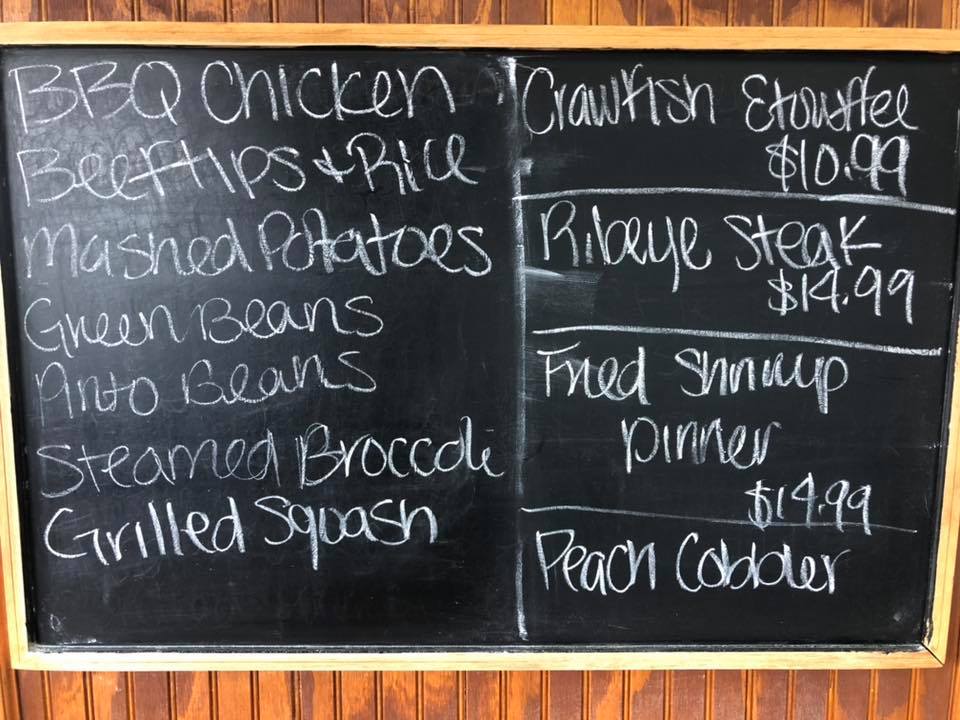 BBQ Chicken
Beef tips & Rice
Mashed Potatoes
Green Beans
Pinto Beans
Steamed Broccoli
Grilled Squash
Crawfish Etouffee
$10.99
Ribeye Steak
$14.99
Fried Shrimp
Dinner
$14.99
Peach Cobbler